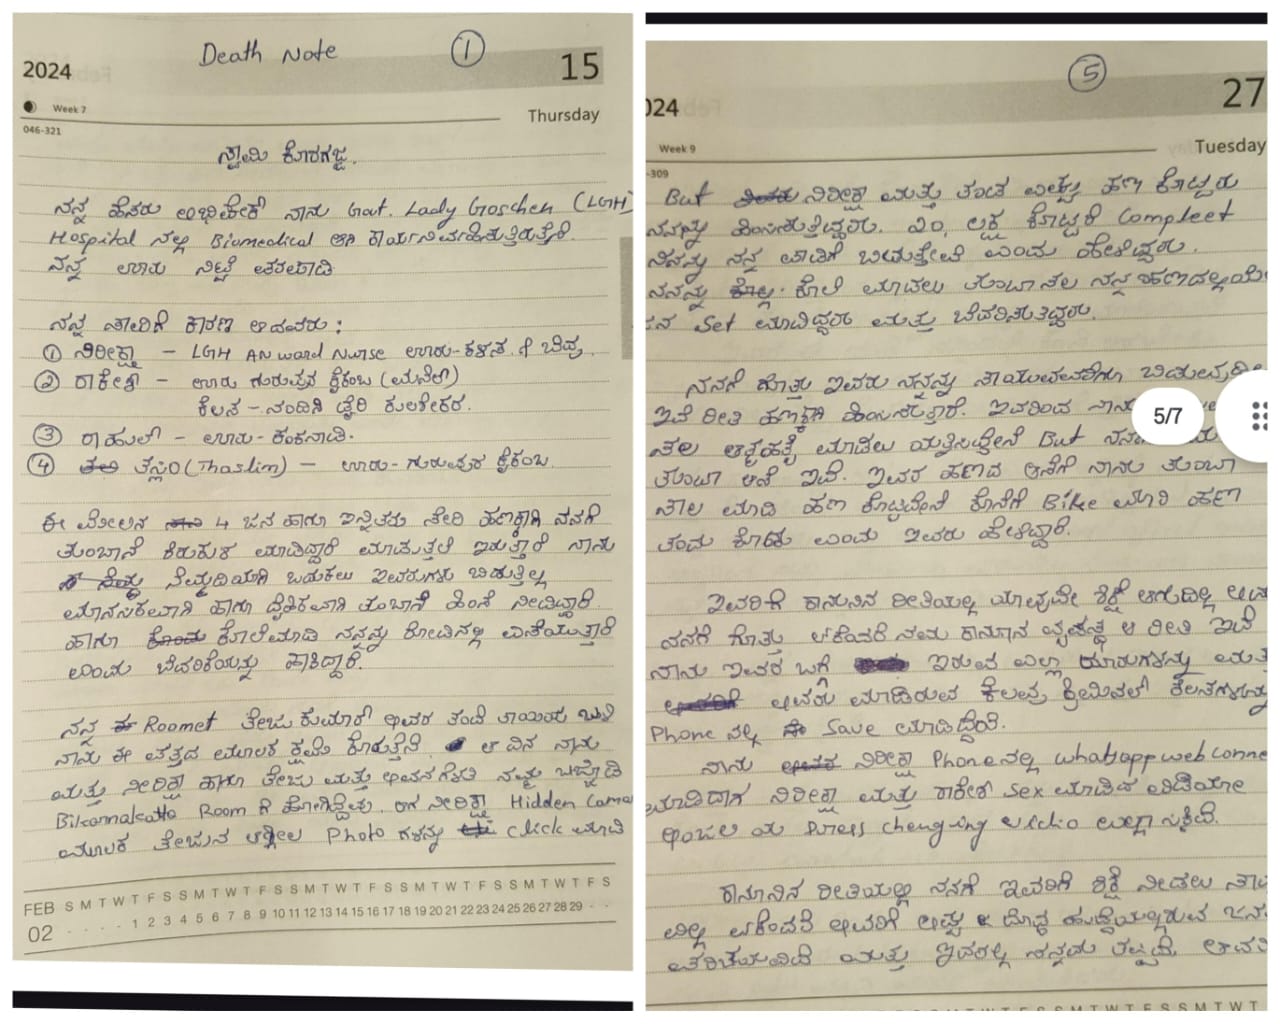 Death Note
①
2024
15
Week 7
Thursday
046-321
ಸ್ವಾಮಿ ಕೊರಗಜ್ಜ.
ನನ್ನ ಹೆಸರು ಅಭಿಷೇಕ್ ನಾನು Govt. Lady Goschen (LGH)
Hospital ನಲ್ಲಿ Biomedical ಆಗಿ ಕಾರ್ಯನಿರ್ವಹಿಸುತ್ತಿರುತ್ತೇನೆ.
ನನ್ನ ಊರು ನಿಟ್ಟೆ ಪರಪಾಡಿ
ನನ್ನ ಸಾವಿಗೆ ಕಾರಣ ಆದವರು :
① ನಿರೀಕ್ಷಾ – LGH AN ward Nurse ಊರು-ಕಳಸ.
② ರಾಕೇಶ್ – ಊರು ಗುರುಪುರ ಕೈಕಂಬ
ಕೆಲಸ – ನಂದಿನಿ ಡೈರಿ ಕುಲಶೇಕರ.
③ ರಾಹುಲ್ – ಊರು- ಕಂಕನಾಡಿ.
④ ತಸ್ಲಿಂ (Thaslim) – ಊರು- ಗುರುಪುರ ಕೈಕಂಬ.
ಈ ಮೇಲಿನ 4 ಜನ ಹಾಗೂ ಇನ್ನಿತರು ಸೇರಿ ಹಣಕ್ಕಾಗಿ ನನಗೆ
ತುಂಬಾನೆ ಕಿರುಕುಳ ಮಾಡಿದ್ದಾರೆ ಮಾಡುತ್ತಲೆ ಇರುತ್ತಾರೆ ನಾನು
ನೆಮ್ಮದಿಯಾಗಿ ಬದುಕಲು ಇವರುಗಳು ಬಿಡುತ್ತಿಲ್ಲ
ಮಾನಸಿಕವಾಗಿ ಹಾಗೂ ದೈಹಿಕವಾಗಿ ತುಂಬಾನೆ ಹಿಂಸೆ ನೀಡಿದ್ದಾರೆ
ಹಾಗೂ ಕೊಲೆಮಾಡಿ ನನ್ನನ್ನು ರೋಡಿನಲ್ಲಿ ಎಸೆಯುತ್ತಾರೆ
ಎಂದು ಬೆದರಿಕೆಯನ್ನು ಹಾಕಿದ್ದಾರೆ.
ನನ್ನ Roomet ತೇಜು ಕುಮಾರ್ ಅವರ ತಂದೆ ತಾಯಿಯ ಬಳಿ
ನಾನು ಈ ಪತ್ರದ ಮೂಲಕ ಕ್ಷಮೆ ಕೋರುತ್ತೇನೆ. ಆ ದಿನ ನಾನು
ಮತ್ತು ನೀರಿಕ್ಷಾ ಹಾಗೂ ತೇಜು ಮತ್ತು ಅವನ ಗೆಳತಿ ನಮ್ಮ
Bikarnakatta Room ಗೆ ಹೋಗಿದ್ದೆವು. ಆಗ ನೀರಿಕ್ಷಾ Hidden Camera
ಮೂಲಕ ತೇಜುನ ಅಶ್ಲೀಲ Photo ಗಳನ್ನು click ಮಾಡಿ
FEB S M T W T F S S M T W T F S S M T W T F S S M T W T F S S M T W T F S
02 . . . . 1 2 3 4 5 6 7 8 9 10 11 12 13 14 15 16 17 18 19 20 21 22 23 24 25 26 27 28 29 . .
⑤
024
27
Week 9
Tuesday
-309
But ನಿರೀಕ್ಷಾ ಮತ್ತು ತಂಡ ಎಷ್ಟು ಹಣ ಕೊಟ್ಟರು
ನನ್ನನ್ನು ಹಿಂಸಿಸುತ್ತಿದ್ದರು. ೨೦, ಲಕ್ಷ ಕೊಟ್ಟರೆ Compleet
ನಿನ್ನನ್ನು ನನ್ನ ಪಾಡಿಗೆ ಬಿಡುತ್ತೇವೆ ಎಂದು ಹೇಳಿದ್ದರು.
ನನ್ನನ್ನು ಕೊಲೆ ಮಾಡಲು ತುಂಬಾ ಸಲ ನನ್ನ ಹಣದಲ್ಲಿಯೆ
ಜನ Set ಮಾಡಿದ್ದರು ಮತ್ತು ಬೆದರಿಸುತಿದ್ದರು.
ನನಗೆ ಗೊತ್ತು ಇವರು ನನ್ನನ್ನು ಸಾಯುವವರೆಗೂ ಬಿಡುವುದಿಲ್ಲ
ಇದೆ ರೀತಿ ಹಣಕ್ಕಾಗಿ ಹಿಂಸಿಸುತ್ತಾರೆ. ಇವರಿಂದ ನಾನು
5/7
ಸಲ ಆತ್ಮಹತ್ಯೆ ಮಾಡಲು ಯತ್ನಿಸಿದ್ದೇನೆ But
ತುಂಬಾ ಆಸೆ ಇದೆ. ಇವರ ಹಣದ ಆಸೆಗೆ ನಾನು ತುಂಬಾ
ಸಾಲ ಮಾಡಿ ಹಣ ಕೊಟ್ಟಿದ್ದೇನೆ ಕೊನೆಗೆ Bike ಮಾರಿ ಹಣ
ತಂದು ಕೊಡು ಎಂದು ಇವರು ಹೇಳಿದ್ದಾರೆ.
ಇವರಿಗೆ ಕಾನುನಿನ ರೀತಿಯಲ್ಲಿ ಯಾವುದೇ ಶಿಕ್ಷೆ ಆಗುದಿಲ್ಲ
ನನಗೆ ಗೊತ್ತು ಏಕೆಂದರೆ ನಮ್ಮ ಕಾನೂನ ವ್ಯವಸ್ಥೆ ಆ ರೀತಿ ಇದೆ
ನಾನು ಇವರ ಬಗ್ಗೆ ಇರುವ ಎಲ್ಲಾ ಮತ್ತು
ಅವರು ಮಾಡಿರುವ ಕೆಲವು ಕ್ರಿಮಿನಲ್ ಕೆಲಸಗಳನ್ನು
Phone ನಲ್ಲಿ Save ಮಾಡಿದ್ದೆನೆ.
ನಾನು ನಿರೀಕ್ಷಾ Phone ನಲ್ಲಿ whatsapp web conne
ಮಾಡಿದಾಗ ನಿರೀಕ್ಷಾ ಮತ್ತು ರಾಕೇಶ್ Sex ಮಾಡಿದ ವಿಡಿಯೋ
Dress chenging vidio ಎಲ್ಲಾ ಸಿಕ್ಕಿದೆ.
ಕಾನೂನಿನ ರೀತಿಯಲ್ಲಿ ನನಗೆ ಇವರಿಗೆ ಶಿಕ್ಷೆ ನೀಡಲು
ಏಕೆಂದರೆ ಅವರಿಗೆ ಅಷ್ಟು ದೊಡ್ಡ ಹುದ್ದೆಯಲ್ಲಿರುವ ಜನ
ಪರಿಚಯವಿದೆ ಮತ್ತು ಇದರಲ್ಲಿ ನನ್ನದು ತಪ್ಪಿದೆ.
S M T W T F S S M T W T